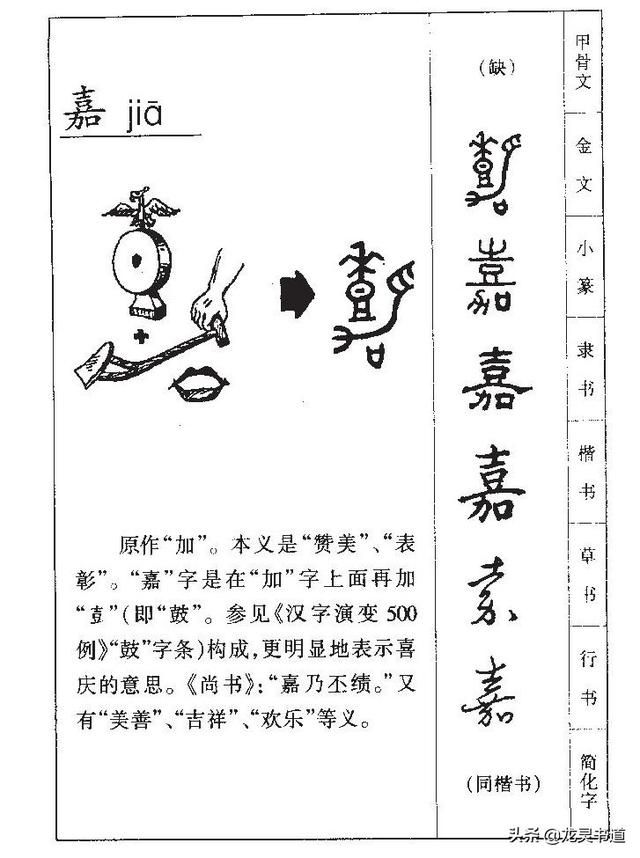 嘉 jiā
原作“加”。本义是“赞美”、“表
彰”。“嘉”字是在“加”字上面再加
“壴”(即“鼓”。参见《汉字演变500
例》“鼓”字条)构成,更明显地表示喜
庆的意思。《尚书》:“嘉乃丕绩。”又
有“美善”、“吉祥”、“欢乐”等义。
(缺)
嘉
嘉
嘉
嘉
嘉
嘉
(同楷书)
甲骨文
金文
小篆
隶书
楷书
草书
行书
简化字
头条 @龙灵书道